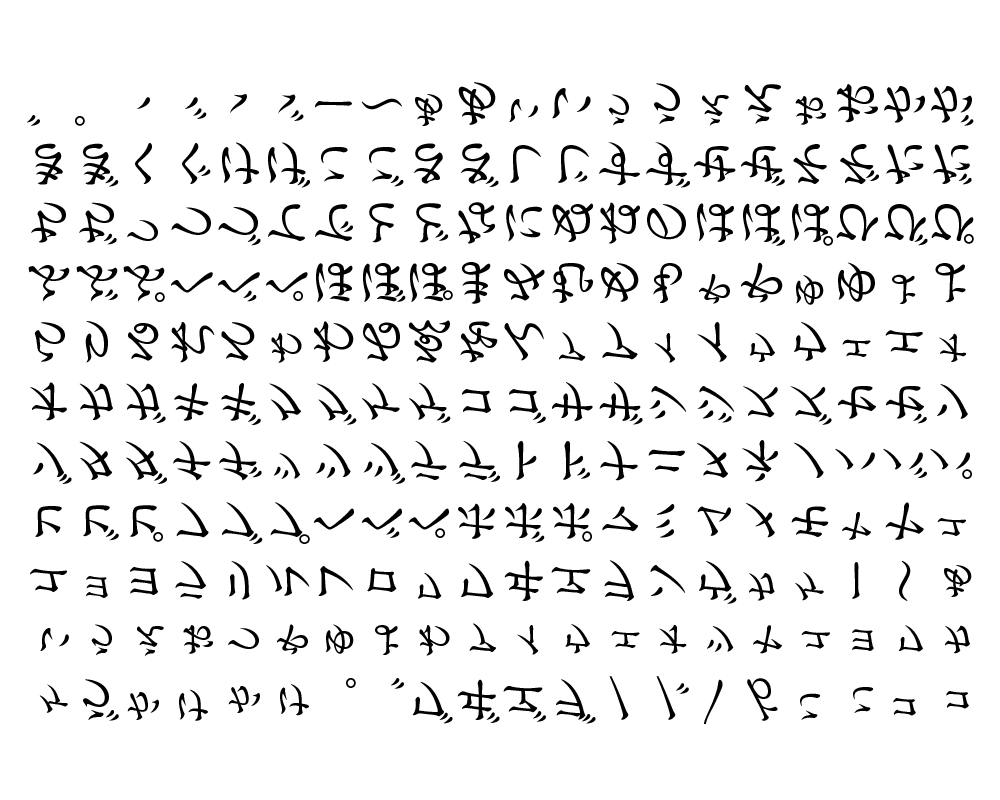 ゛ ゜ ヽ ヾ ゝ ゞ ー 〜 ぁ あ ぃ い ぅ う ぇ え ぉ お か が
き ぎ く ぐ け げ こ ご さ ざ し じ す ず せ ぜ そ ぞ た だ
ち ぢ っ つ づ て で と ど な に ぬ ね の は ば ぱ ひ び ぴ
ふ ぶ ぷ へ べ ぺ ほ ぼ ぽ ま み む め も ゃ や ゅ ゆ ょ よ
ら り る れ ろ ゎ わ ゐ ゑ を ん ァ ア ィ イ ゥ ウ ェ エ ォ
オ カ ガ キ ギ ク グ ケ ゲ コ ゴ サ ザ シ ジ ス ズ セ ゼ ソ
ゾ タ ダ チ ヂ ッ ツ ヅ テ デ ト ド ナ ニ ヌ ネ ノ ハ バ パ
ヒ ビ ピ フ ブ プ ヘ ベ ペ ホ ボ ポ マ ミ ム メ モ ャ ヤ ュ
ユ ョ ヨ ラ リ ル レ ロ ヮ ワ ヰ ヱ ヲ ン ヴ ヵ ヶ ︱ ≀ ぁ
ぃ ぅ ぇ ぉ っ ゃ ゅ ょ ゎ ァ ィ ゥ ェ ォ ッ ャ ュ ョ ヮ ヵ
ヶ ゔ ゕ ゖ ゕ ゖ ゜ ゛ ヷ ヸ ヹ ヺ 〳 〴 〵 ゟ こ こ コ コ